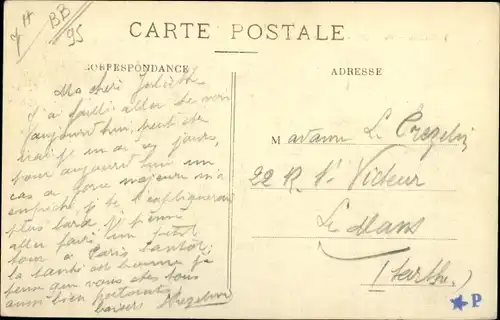 H
BB
95
CARTE POSTALE
CORRESPONDANCE
ADRESSE
Ma chère Juliette
J'ai failli aller te voir
aujourd'hui peut être
irai je un de ces jours,
pour aujourd'hui un
cas de force majeure m'a
empêché je te l'expliquerai
plus tard. je pense
aller faire un petit
tour à Paris tantôt,
la santé est bonne je
pense que vous êtes tous
aussi bien portants
baisers
Madame Le
22 R. St Victeur
Le Mans
(Sarthe)
P